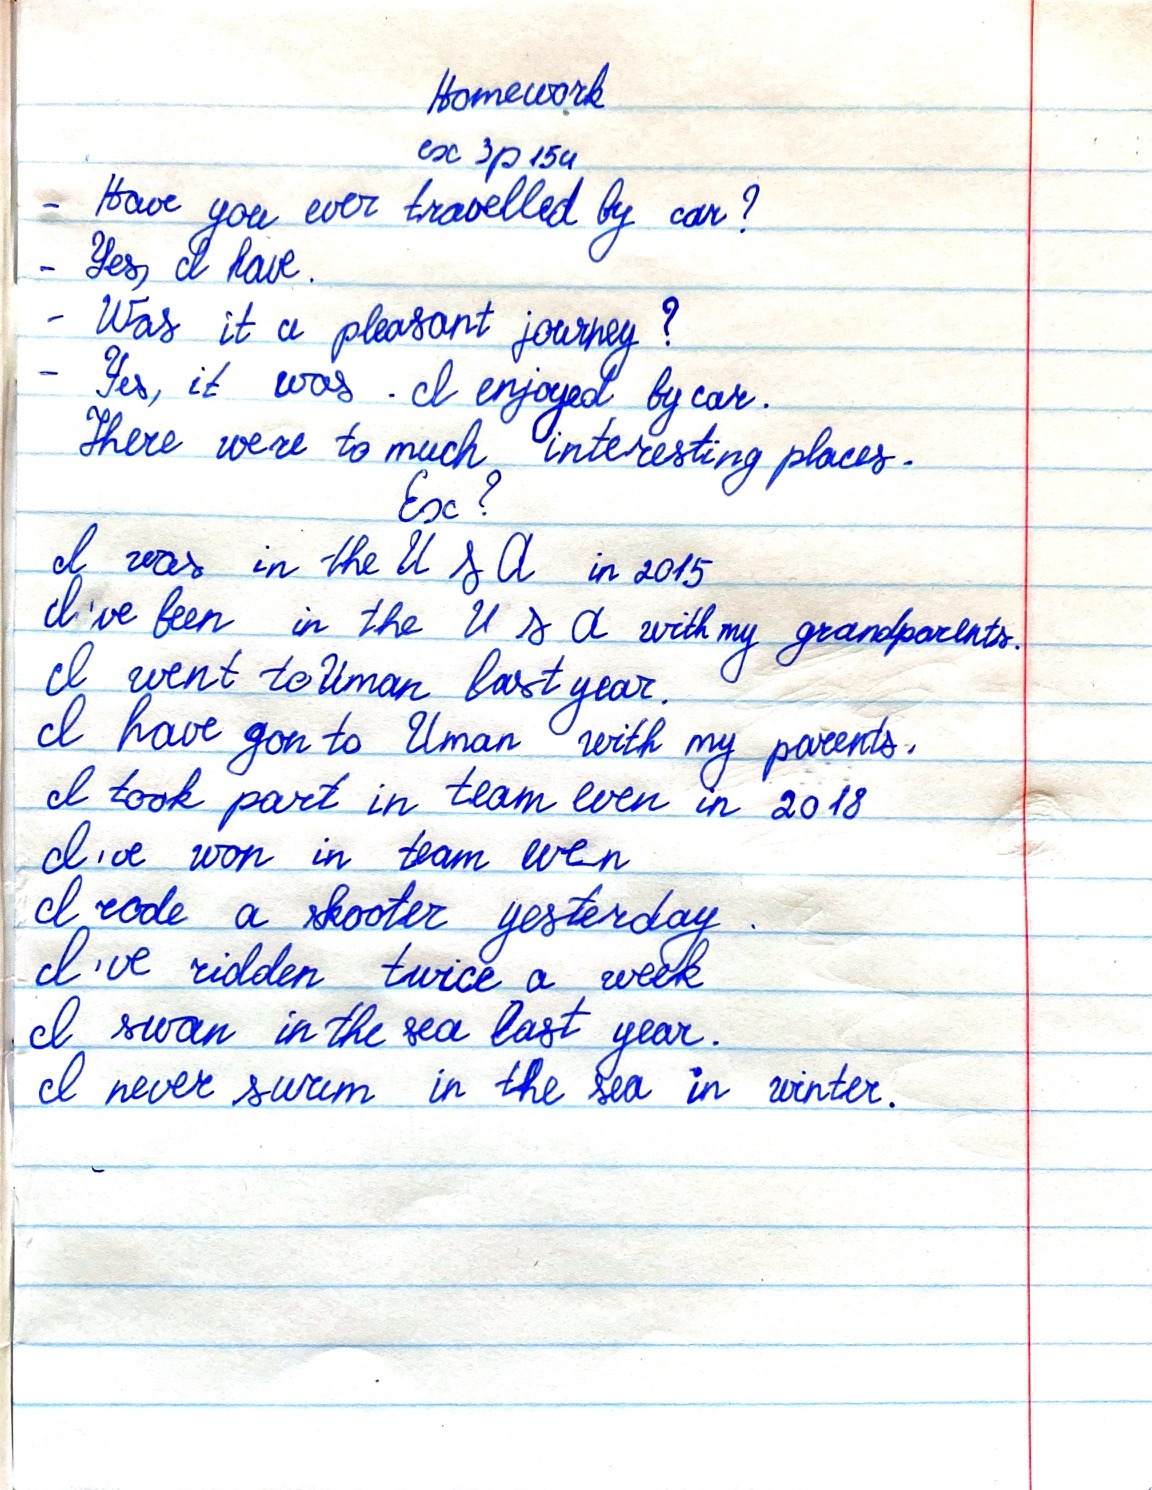 Homework
ex 3p 154
- Have you ever travelled by car?
- Yes, I have.
- Was it a pleasant journey?
- Yes, it was. I enjoyed by car.
There were to much interesting places.
Ex ?
I was in the U S A in 2015
I've been in the U S A with my grandparents.
I went to Uman last year.
I have gon to Uman with my parents.
I took part in team even in 2018
I've won in team even
I rode a skooter yesterday.
I've ridden twice a week
I swan in the sea last year.
I never swum in the sea in winter.